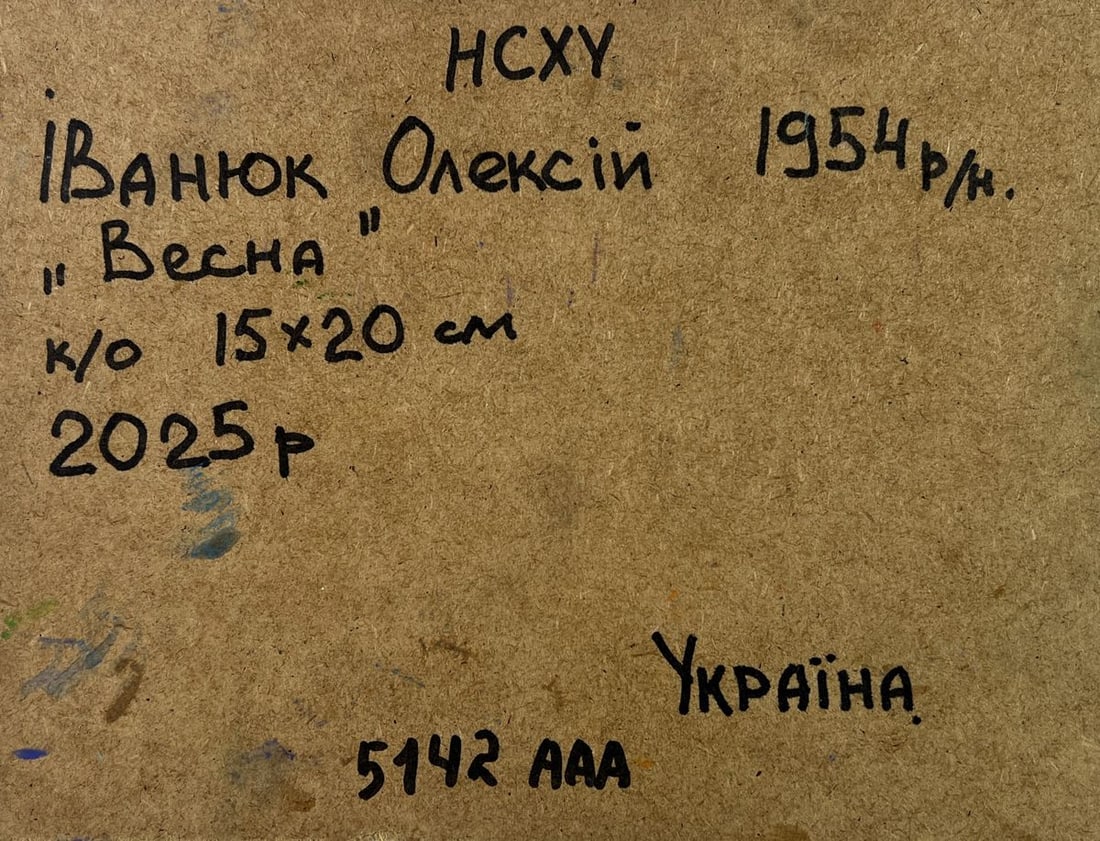 НСХУ
Іванюк Олексій 1954 р/н.
„Весна"
к/о 15х20 см
2025 р
Україна.
5142 ААА